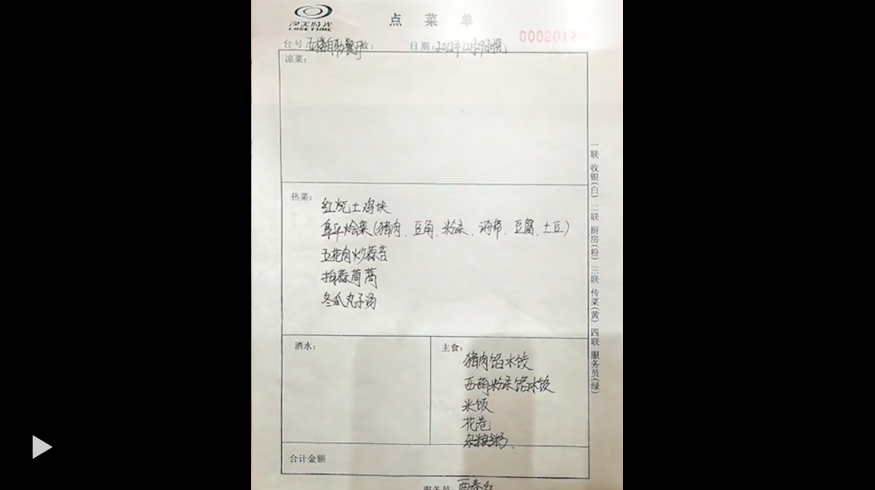 点 菜 单
0002012
台号:五楼自助餐厅
日期:2012年12月29日晚
凉菜:
热菜:
红烧土鸡块
阜平烩菜(猪肉、豆角、粉条、海带、豆腐、土豆)
五花肉炒蒜苔
拍蒜茼蒿
冬瓜丸子汤
酒水:
主食:
猪肉馅水饺
西葫粉条馅水饺
米饭
花卷
杂粮粥
合计金额
服务员:
一联 收银(白) 二联 厨房(粉) 三联 传菜(黄) 四联 服务员(绿)